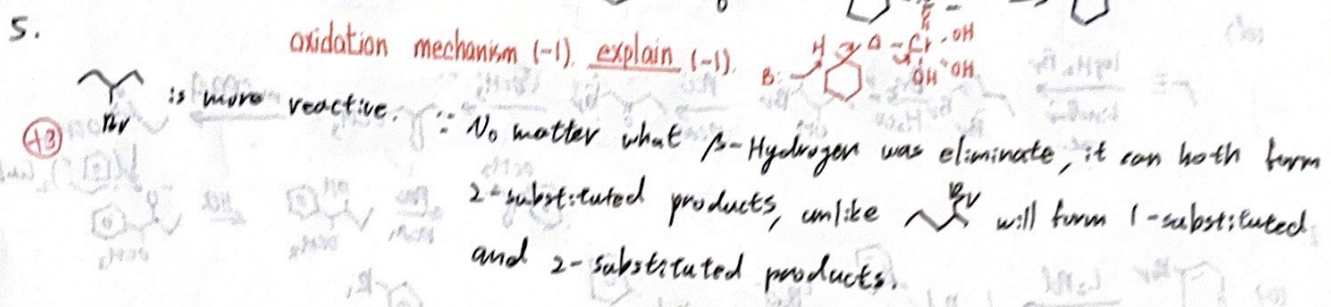 5.
oxidation mechanism (-1). explain (-1).
H O Cr OH
B: OH OH
is more reactive. ∵ No matter what β-Hydrogen was eliminate, it can both form
Br
+3
2-substituted products, unlike Br will form 1-substituted
and 2-substituted products.